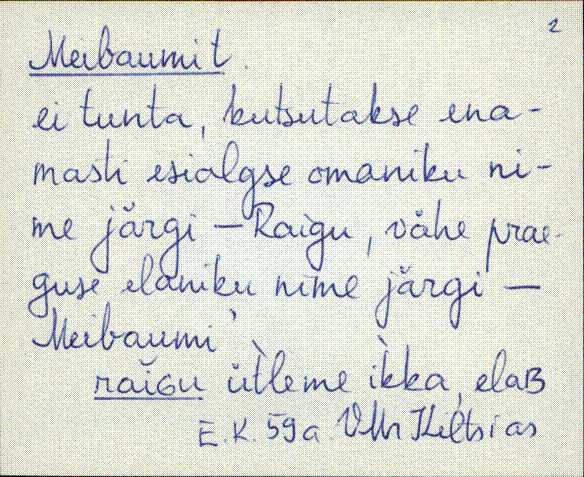 2
Meibaumit
ei tunta, kutsutakse ena-
masti esialgse omaniku ni-
me järgi – Raigu, vähe prae-
guse elaniku nime järgi –
Meibaumi
raiGu ǜtleme ìkka, elaB
E.K. 59 a. VMr Kiltsi as